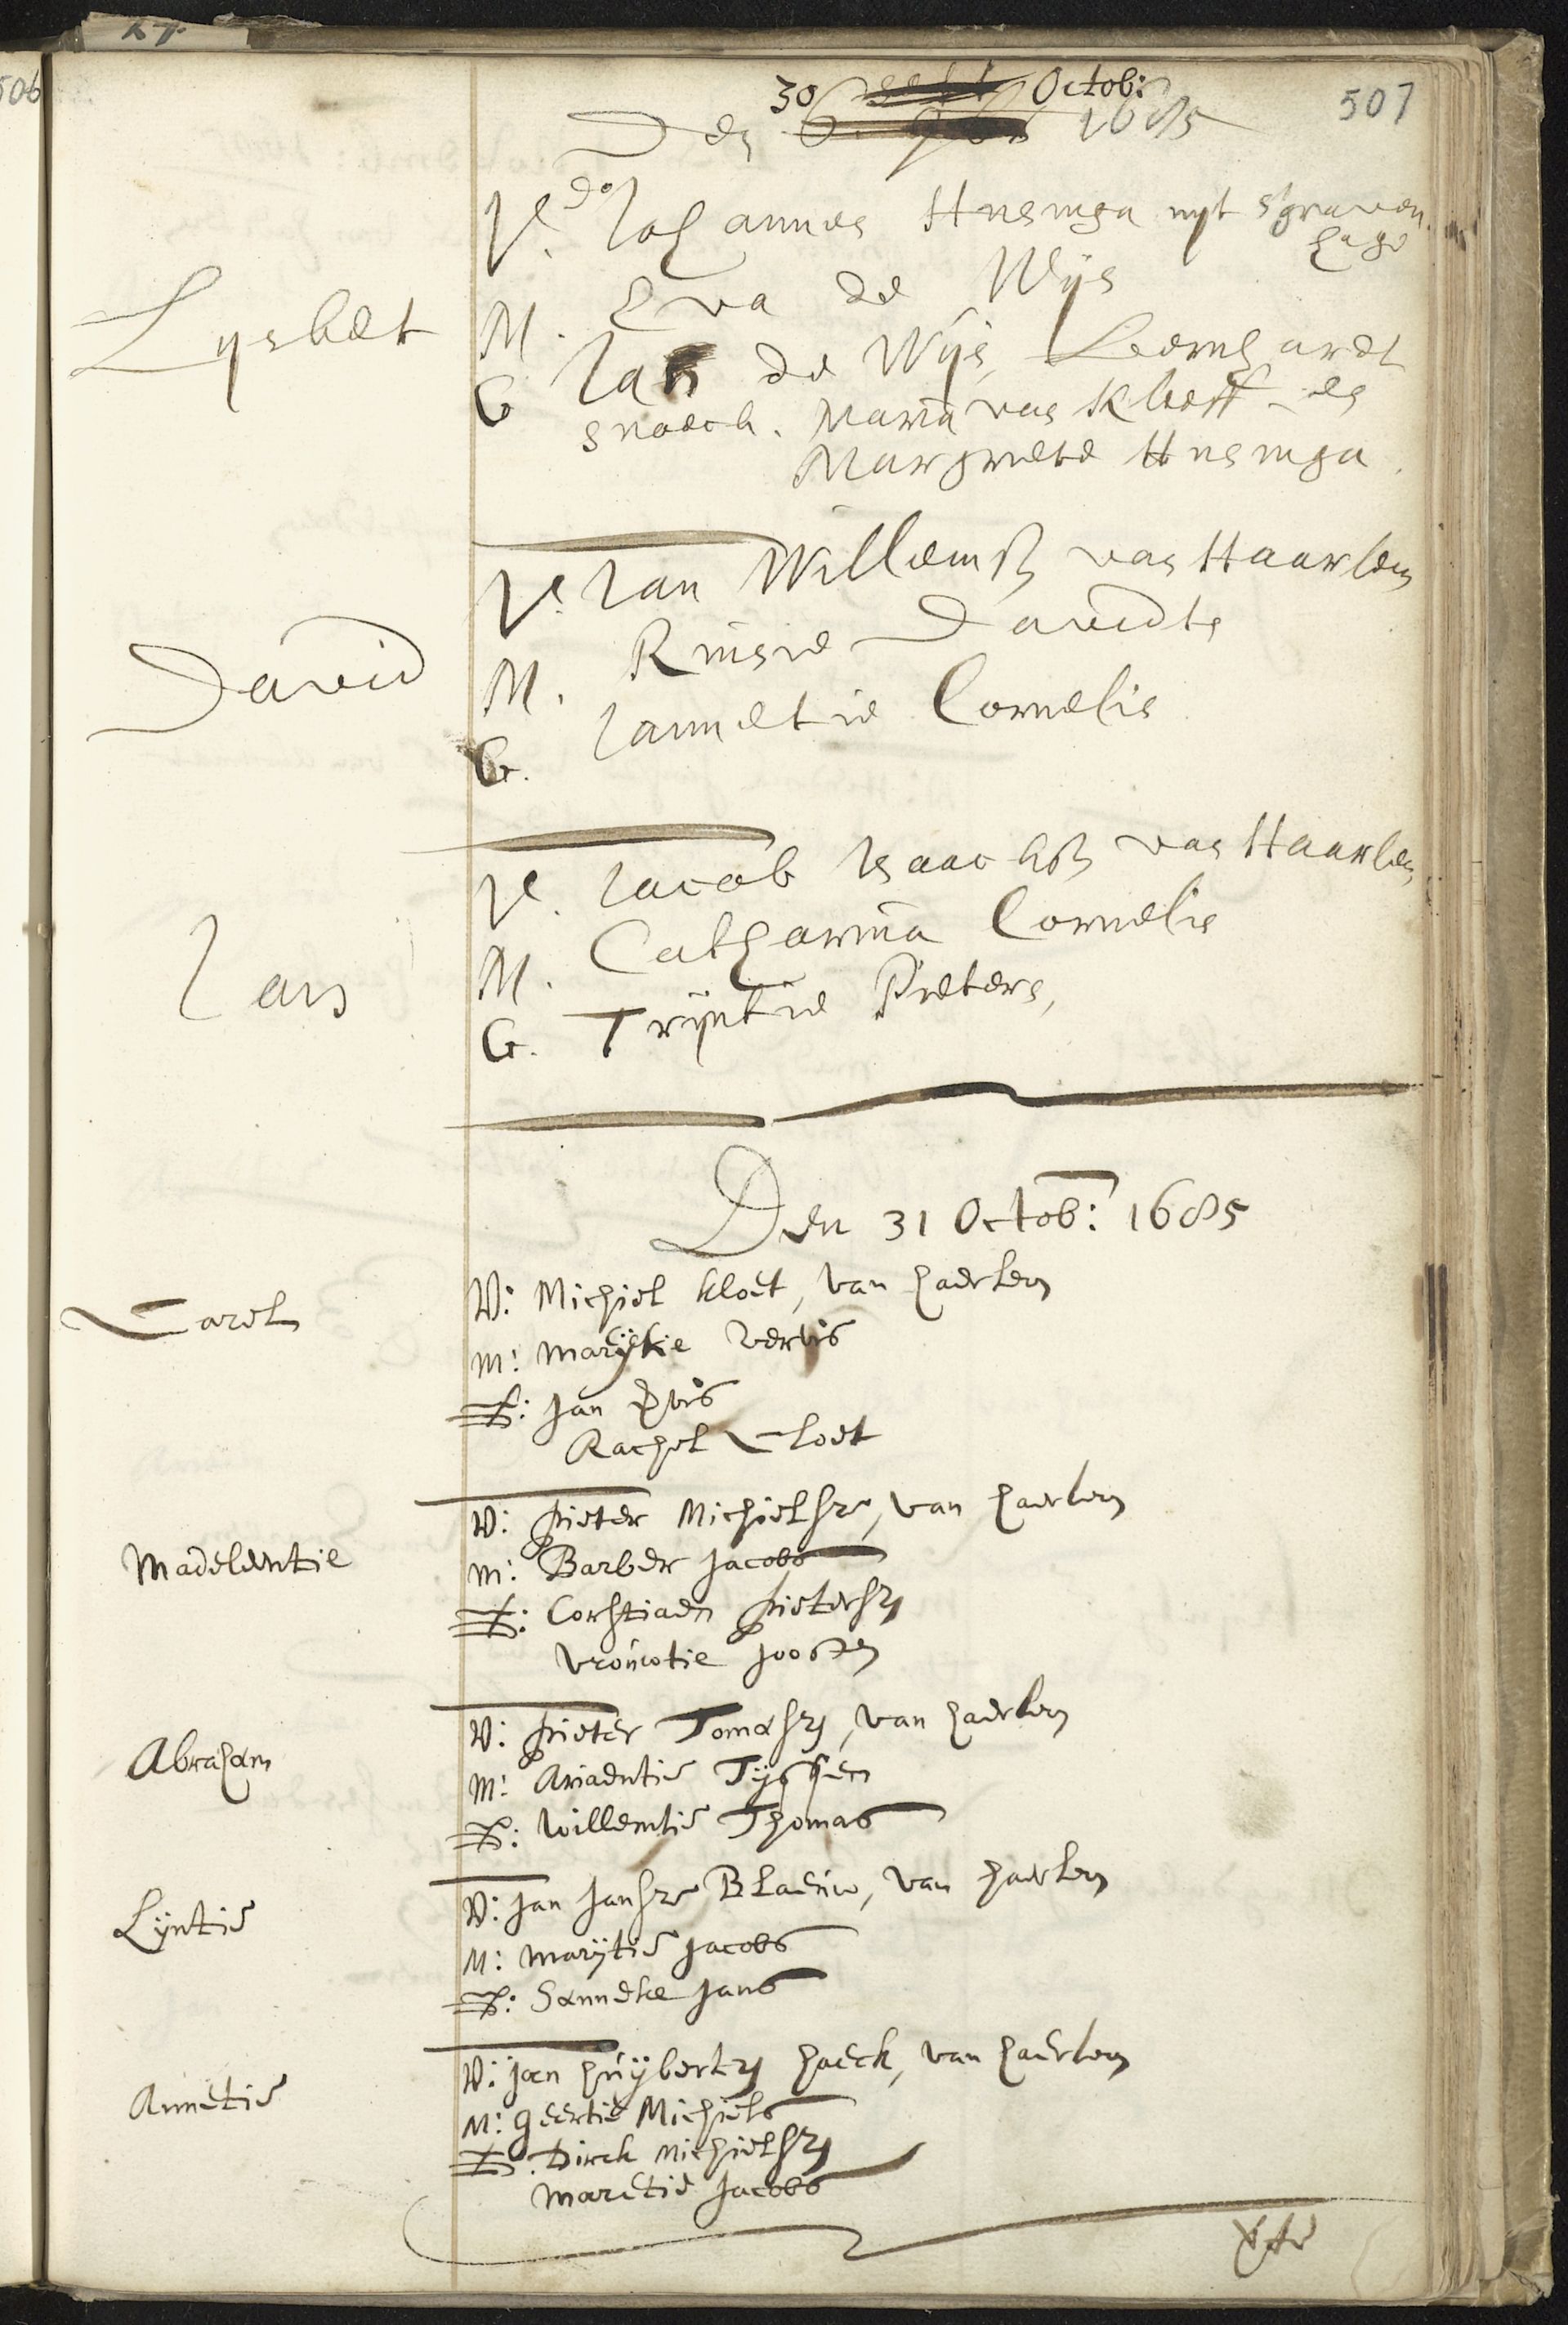 506
507
30 Octob:
Den 1685
Lysbet
V. do Johannes Husinga uyt sgraven
hage
M. Eva de Wijs
G Jan de Wijs, Leenhardt
snoeck. Maria van Kleeff en
Margriete Husinga.
David
V. Jan Willemsz van Haarlem
M. Davidts
G. Jannetie Cornelis
Jan
V. Jacob Isaacksz van Haarlem
M. Catharina Cornelis
G. Trijntie Pieters,
Den 31 Octob: 1685
Carel
V: Michiel kloet, van haerlem
M: Marijtie Vervis
G: Jan
Rachel Cloet
Madelentie
V: pieter Michielsze, van haerlem
M: Barber Jacobs
G: Corstiaen pietersz
vroúwtie Joosten
Abraham
V: pieter Tomasz, van haerlem
M: Ariaentie Tijssen
G: Willemtie Thomas
Lijntie
V: Jan Jansze Blaeúw, van haerlem
M: Marijtie Jacobs
G: Sanneke Jans
Annetie
V: Jan húijbertsz haeck, van haerlem
M: geertie Michiels
G: Dirck Michielsz
Maretie Jacobs